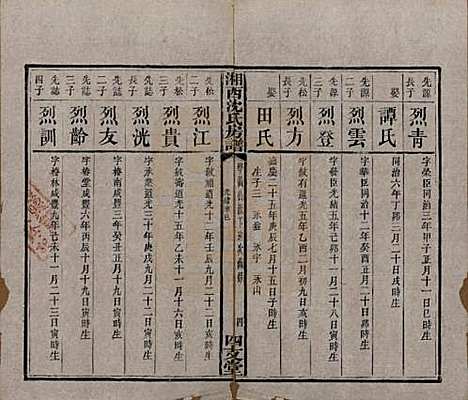 先源
長子
烈青
字榮臣同治三年甲子正月十一日巳時生
娶
譚氏
同治六年丁卯三月二十日戌時生
先源
二子
烈雲
字華臣同治十二年癸酉正月二十日卯時生
先源
三子
烈登
光緒五年己卯十一月二十八日寅時生
先
長子
烈方
字敘有道光五年乙酉二月初九日亥時生
娶
田氏
嘉慶二十五年庚辰七月十五日子時生
生子三 永 永宇 永
湘西沈氏房譜
四
四支堂
先松
二子
烈江
道光十二年壬辰九月十一日寅時生
先松
三子
烈貴
字喬道光十五年乙未十一月十九日寅時生
先誌
長子
烈洸
字承業道光三十年庚戌九月二十二日寅時生
先誌
二子
烈友
字椿南咸豐三年癸丑正月十九日寅時生
先誌
三子
烈齡
字椿堂咸豐六年丙辰十月十九日寅時生
先誌
四子
烈訓
字椿林咸豐九年己未十一月二十二日寅時生